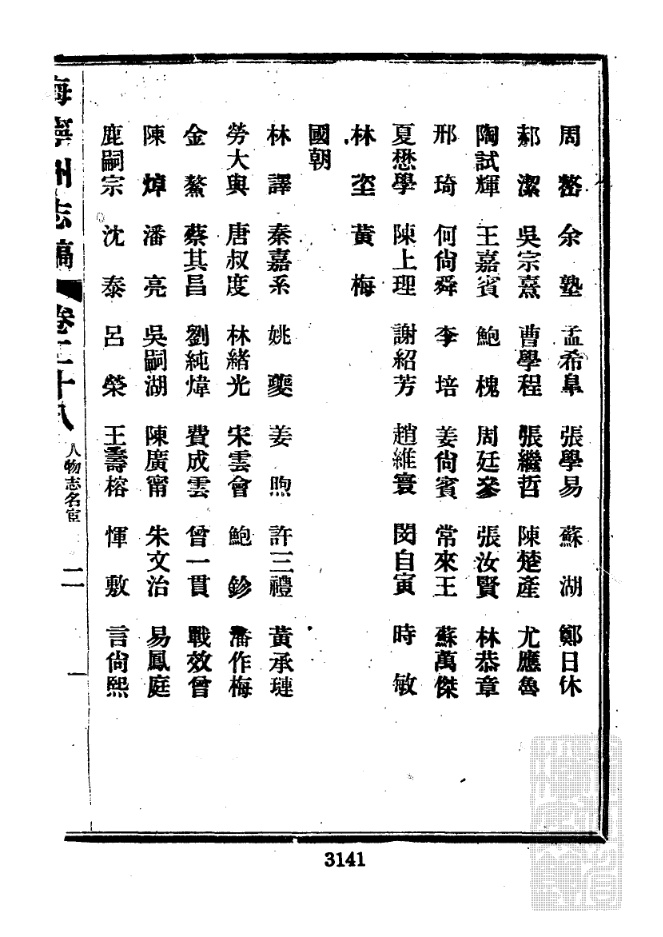 周嵆 余塾 孟希臯 張學易 蘇湖 鄭日休
郝潔 吳宗熹 曹學程 張繼哲 陳楚產 尤應魯
陶試輝 王嘉賓 鮑槐 周廷參 張汝賢 林恭章
邢琦 何尙舜 李培 姜尙賓 常來王 蘇萬傑
夏懋學 陳上理 謝紹芳 趙維寰 閔自寅 時敏
林垄 黃梅
國朝
林譯 秦嘉系 姚夔 姜煦 許三禮 黃承璉
勞大與 唐叔度 林緒光 宋雲會 鮑鉁 潘作梅
金鰲 蔡其昌 劉純煒 費成雲 曾一貫 戰效曾
陳焯 潘亮 吳嗣湖 陳廣甯 朱文治 易鳳庭
鹿嗣宗 沈泰 呂榮 王壽榕 惲敷 言尙熙
海寧州志稿 卷二十八 人物志名宦 二
3141